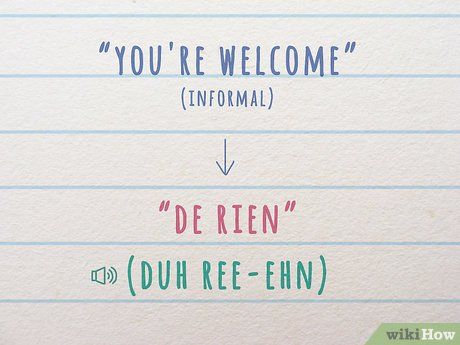 “YOU'RE WELCOME”
(INFORMAL)
“DE RIEN”
(DUH REE-EHN)
wikiHow